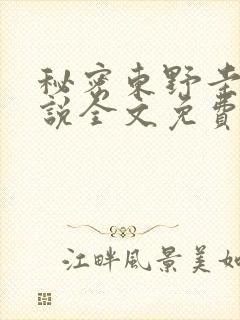 秘密東野圭
說全文免費
江畔風景美如